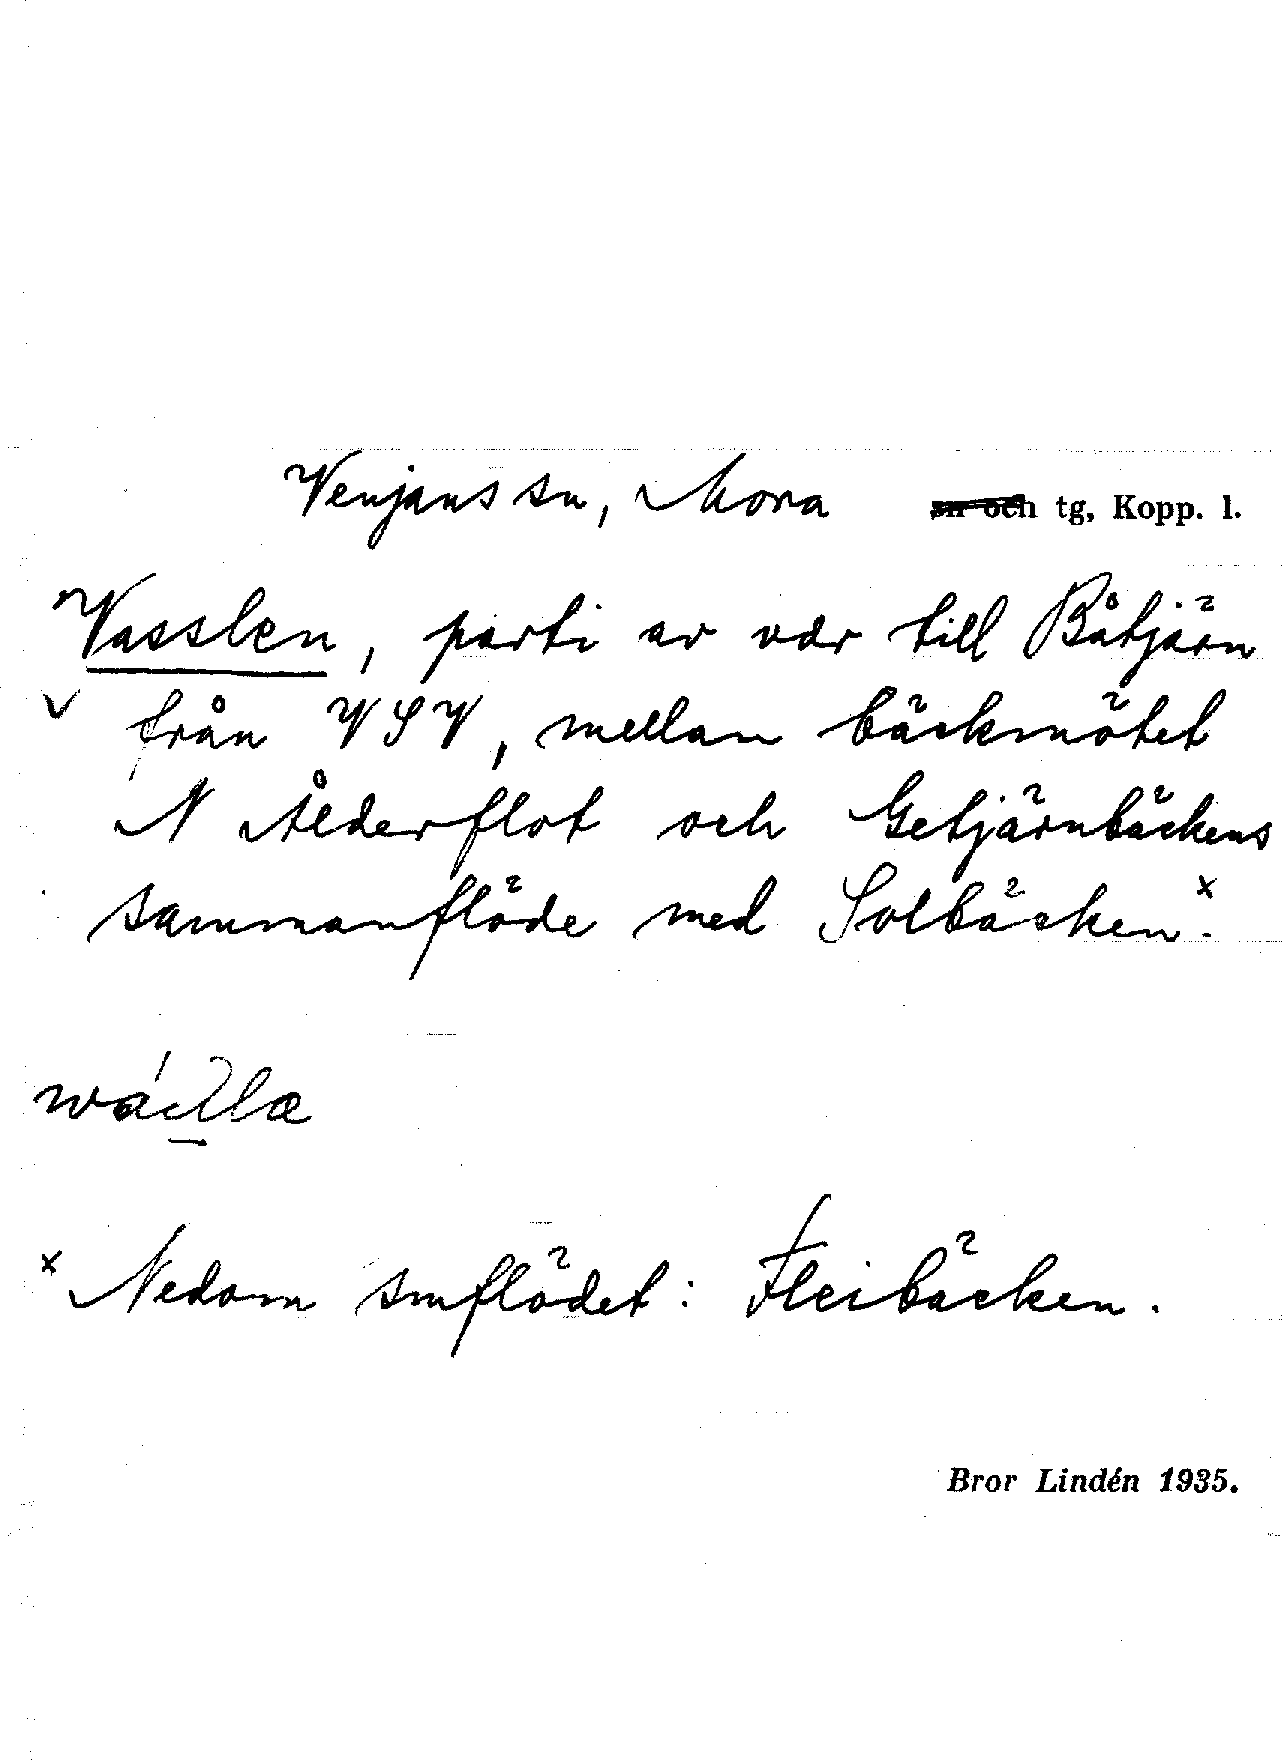 Venjans sn, Mora sn och tg, Kopp. l.
Vasslen, parti av vdr till Båtjärn
från VSV, mellan bäckmötet
N Ålderflot och Getjärnbäckens
sammanflöde med Solbäcken.x
x Nedom smflödet: Fleibäcken.
Bror Lindén 1935.